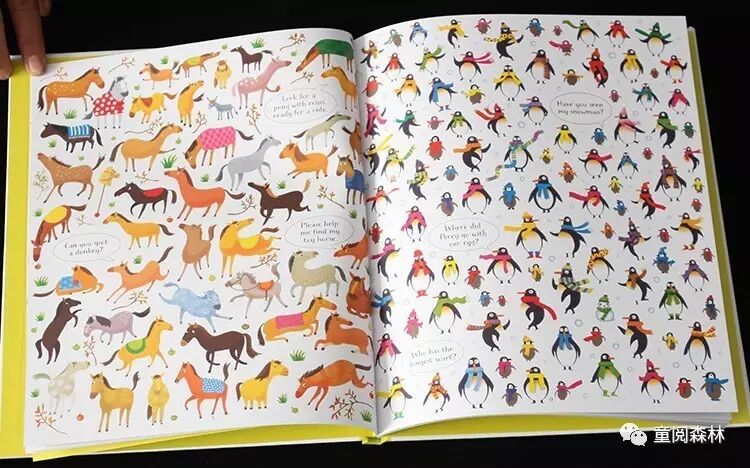 Look for a
pony with reins,
ready for a ride.
Can you spot
a donkey?
Please help
me find my
toy horse.
Have you seen
my snowman?
Where did
Percy go with
our egg?
Who has the
longest scarf?
童阅森林